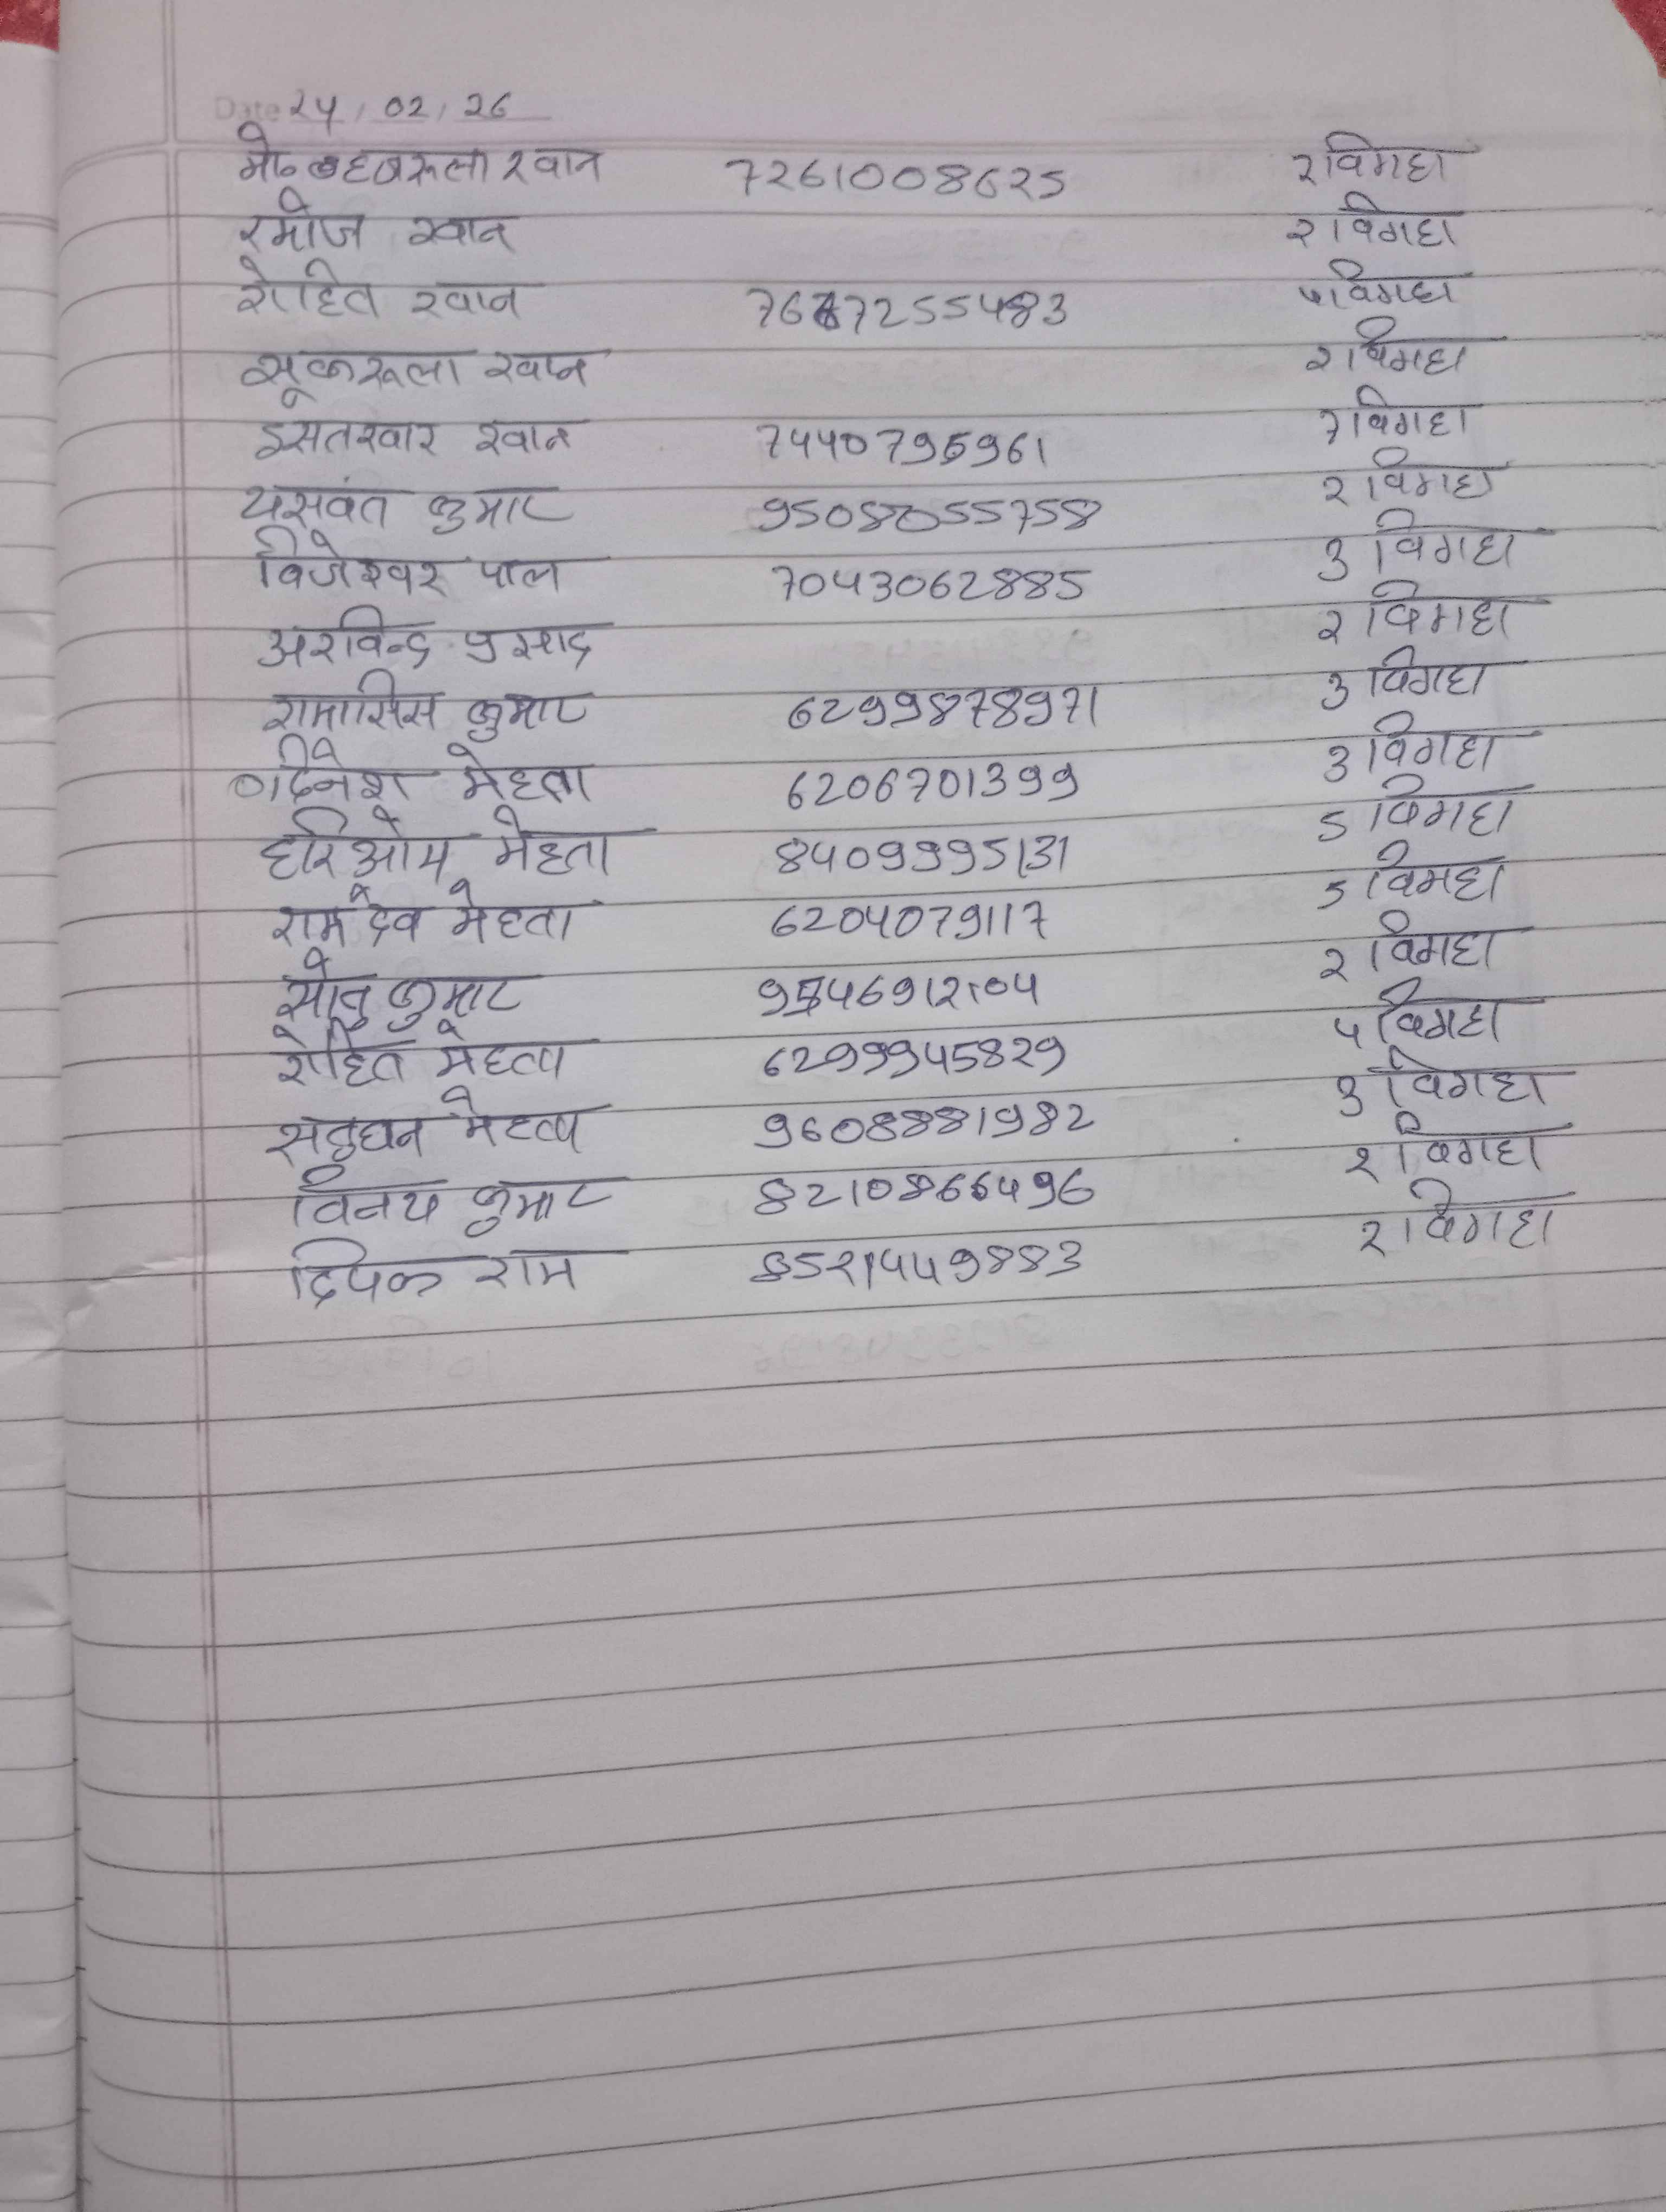 Date 24/02/26
मो० खान 7261008625 २ विगहा
रमोज खान २ विगहा
रोहित खान 7667255483 ५ विगहा
सूकरूला खान २ विगहा
इसतखार खान 7440795961 7 विगहा
यसवंत कुमार 9508055758 २ विगहा
विजेश्वर पाल 7043062885 3 विगहा
अरविन्द प्रसाद २ विगहा
रामासिस कुमार 6299878971 3 विगहा
दिनेश मेहता 6206701399 3 विगहा
हरिओम मेहता 8409995131 5 विगहा
राम देव मेहता 6204079117 5 विगहा
सोनु कुमार 9546912104 २ विगहा
रोहित मेहता 6299945829 ५ विगहा
मेहता 9608881982 3 विगहा
विनय कुमार 8210866496 २ विगहा
दिपक राम 8521449883 २ विगहा